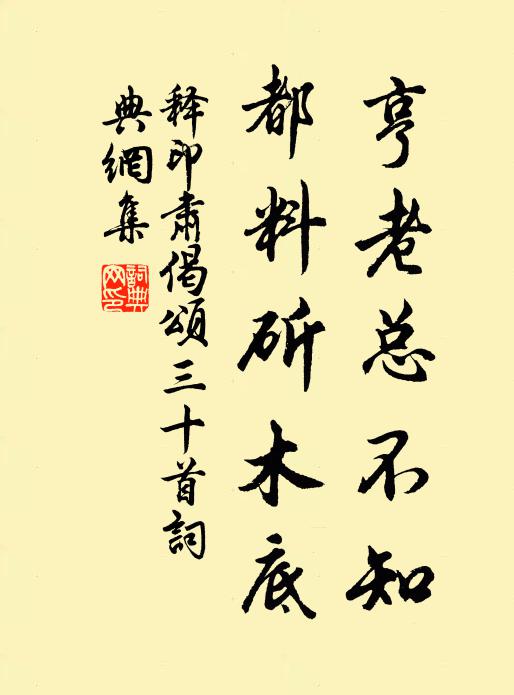 亨老总不知
都料斫木底
释印肃偈颂三十首詞
典網集
詞典網印